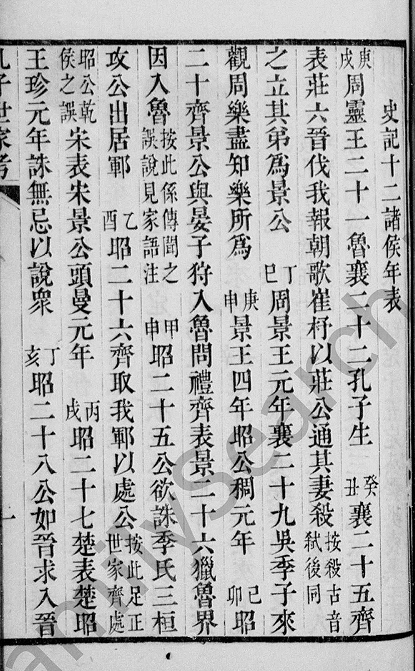 史記十二諸侯年表
庚戌周靈王二十一魯襄二十二孔子生癸丑襄二十五齊
表莊六晉伐我報朝歌崔杼以莊公通其妻殺按殺古音弒後同
之立其弟爲景公丁巳周景王元年襄二十九吳季子來
觀周樂盡知樂所爲庚申景王四年昭公稠元年己卯
二十齊景公與晏子狩入魯問禮齊表景二十六獵魯界
因入魯按此係傳聞之誤說見家語注甲申昭二十五公欲誅季氏三桓
攻公出居鄆乙酉昭二十六齊取我鄆以處公按此足正世家齊處
昭公乾侯之誤宋表宋景公頭曼元年丙戌昭二十七楚表楚昭
王珍元年誅無忌以說衆丁亥昭二十八公如晉求入晉
孔子世家考
一